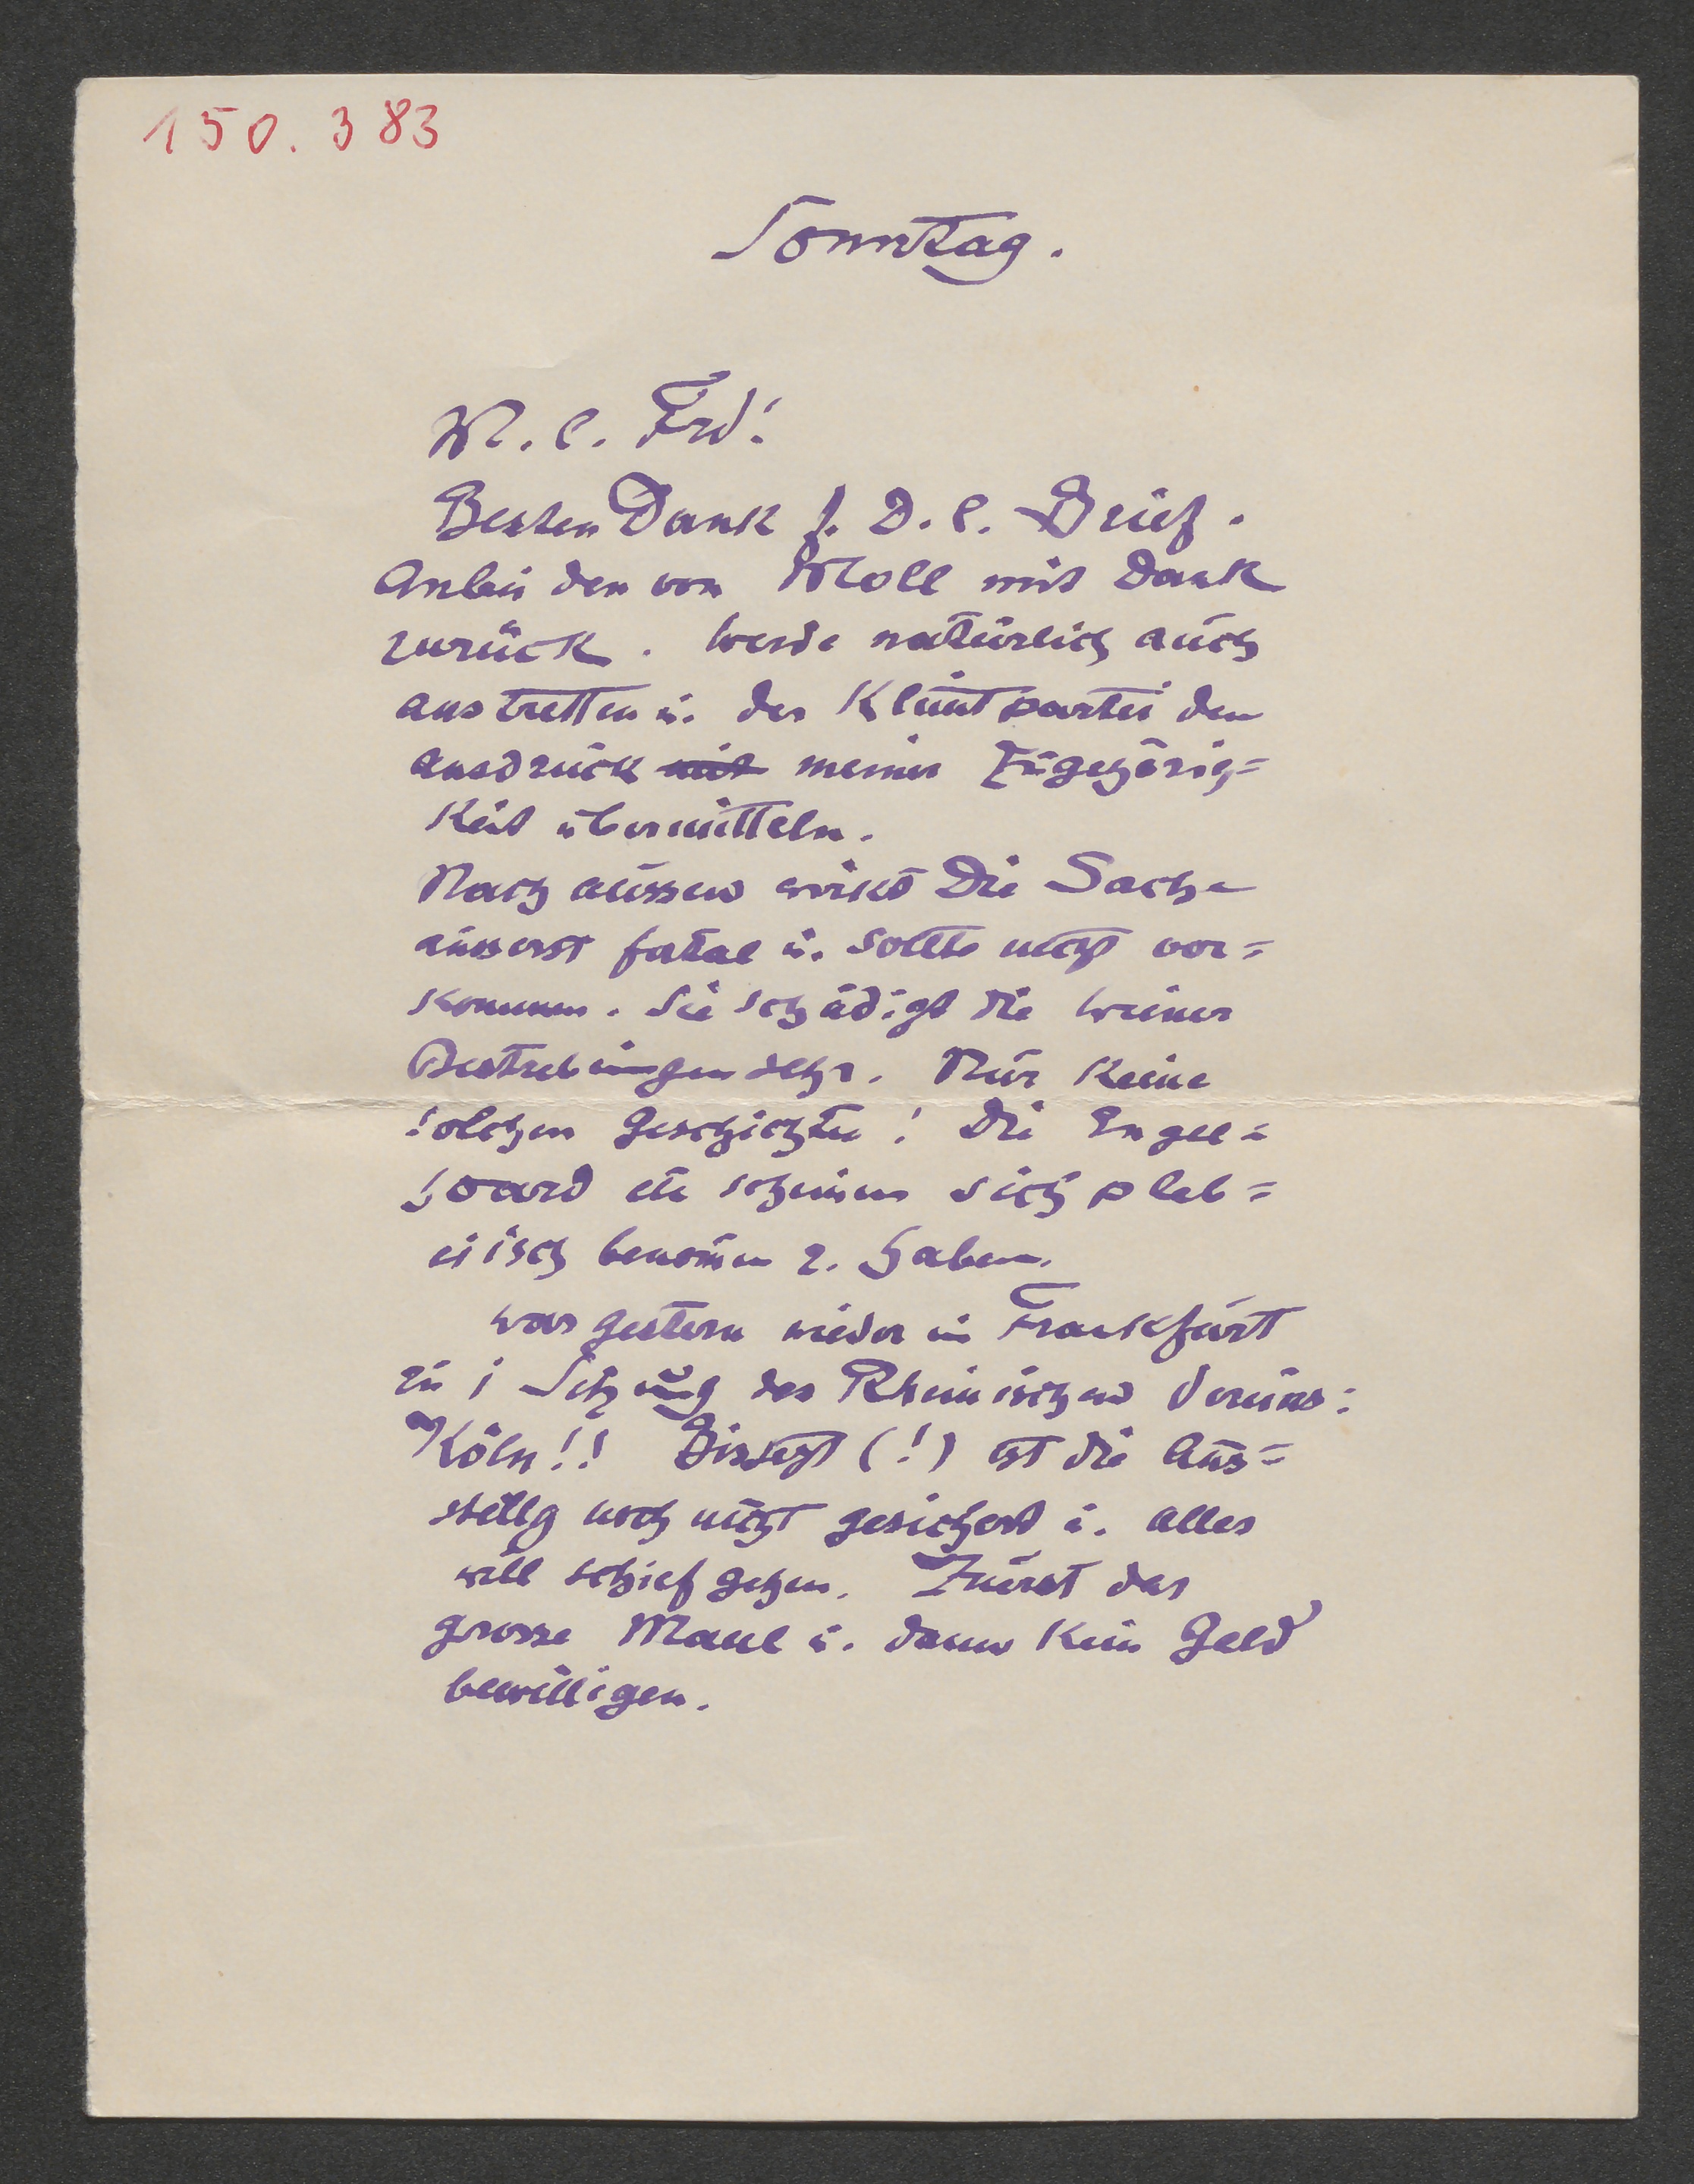 150.383
Sonntag.
M. l. Frd!
Besten Dank f. D. l. Brief.
Anbei den von Moll mit Dank
zurück. Werde natürlich auch
austretten u. der Klimtpartei den
Ausdruck mit meiner Zugehörig=
keit übermitteln.
Nach aussen wirkt die Sache
äusserst fatal u. sollte nicht vor=
kommen. Sie schädigt die Wiener
Bestrebungen sehr. Nur keine
solchen Geschichten! Die Engel=
hard etc scheinen sich pleb=
eiisch benommen z. haben.
War gestern wieder in Frankfurt
zu 1 Sitzung des Rheinischen Vereins:
Köln!! Bisjetzt (!) ist die Aus=
stellg noch nicht gesichert u. alles
will schief gehen. Zuerst das
grosse Maul u. dann kein Geld
bewilligen.